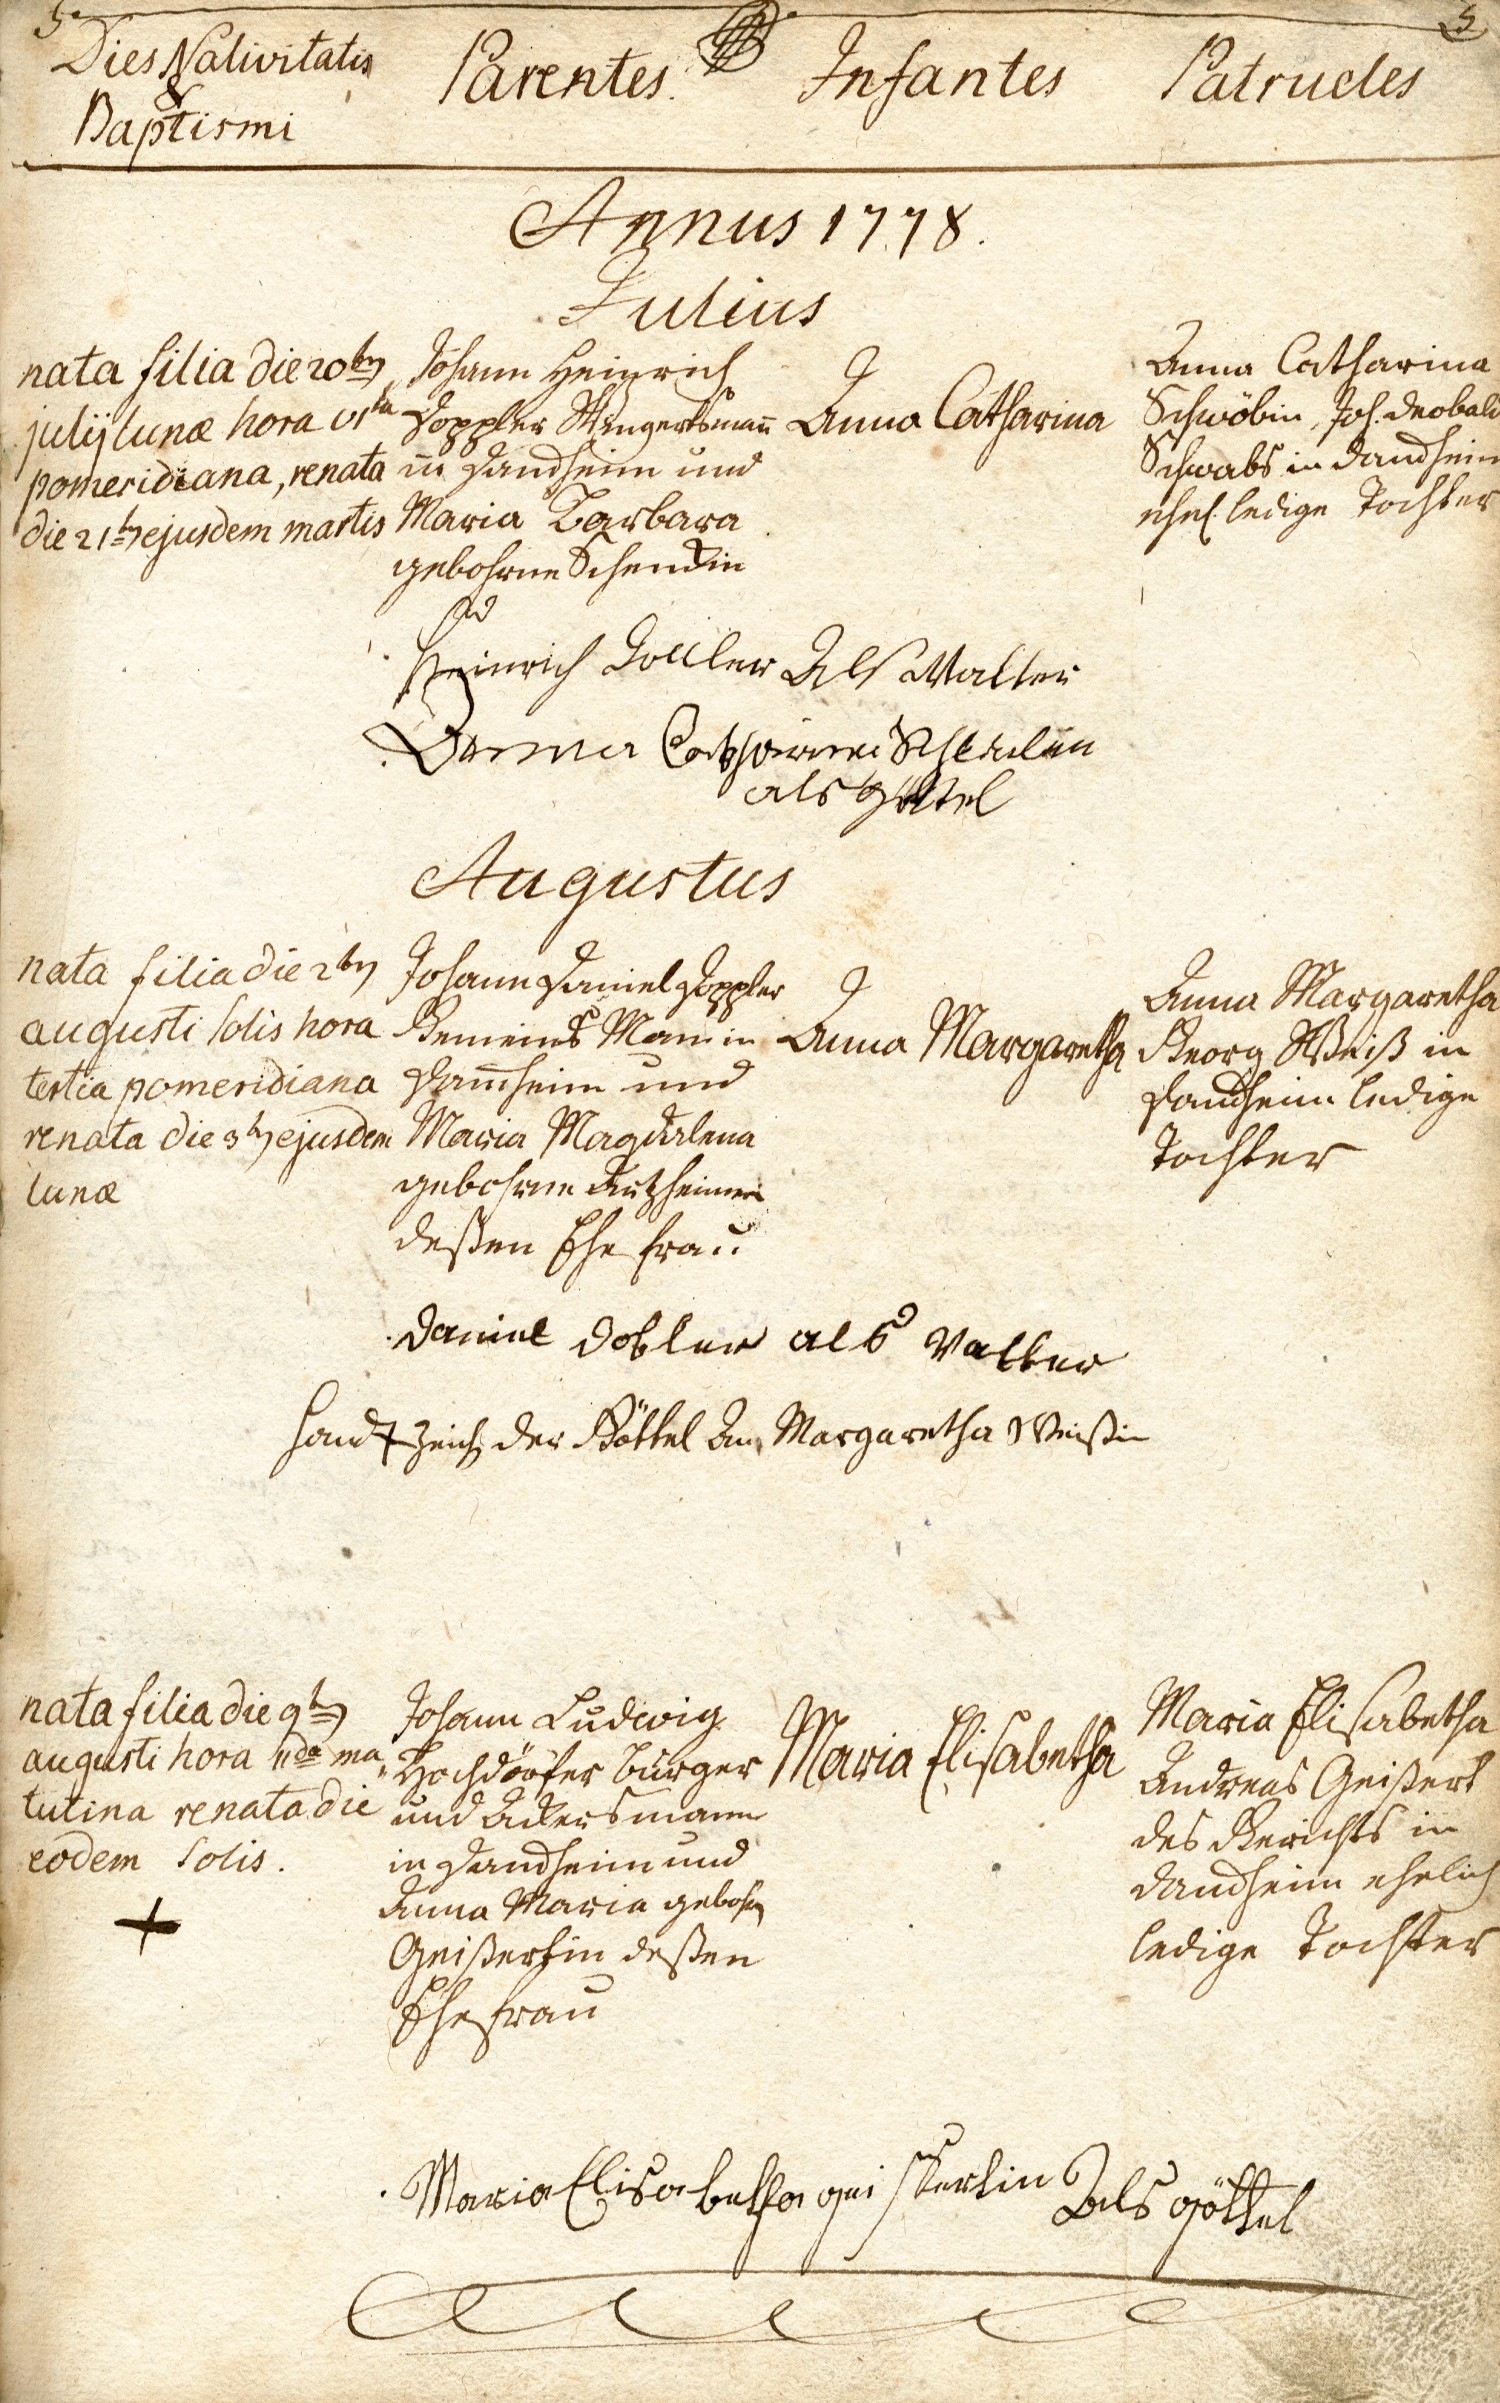 5. 5
Dies Nativitatis
&
Baptismi
Parentes.
Infantes
Patrueles
Annus 1778.
Julius
nata filia die 20
julij lunæ hora
pomeridiana, renata
die 21 ejusdem martis
Johann Heinrich
Doppler Wingertsmañ
in Dandheim und
Maria Barbara
gebohrne
Anna Catharina
Anna Catharina
Schwöbin, Joh. Deobald
Schwabs in Dandheim
ehel. ledige Tochter
Heinrich als Vatter
Catharina
als göttel
Augustus
nata filia die 2
augusti solis hora
tertia pomeridiana
renata die 3 ejusdem
lunæ
Johann Daniel Doppler
Gemeins Mann in
Damheim und
Maria Magdalena
gebohrne
deßen Ehe frau
Anna Margaretha
Anna Margaretha
Georg Weiß in
Dandheim ledige
Tochter
Daniel dobler als Vatter
Hand + Zeich der Göttel An. Margaretha Weißin
nata filia die 9
augusti hora 11 ma
tutina renata die
eodem solis.
+
Johann Ludwig
Hochdörfer bürger
und Ackersmann
in Dandheim und
Anna Maria gebohrn
Geißertin deßen
Ehefrau
Maria Elisabetha
Maria Elisabetha
Andreas Geißert
des Gerichts in
Dandheim ehelich
ledige Tochter
Maria Elisabetha geissertin Als göttel